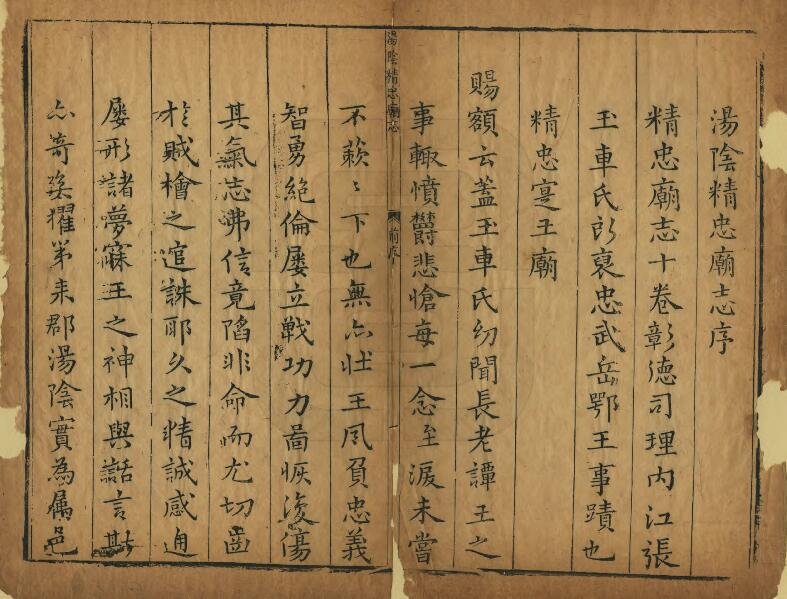 湯陰精忠廟志序
精忠廟志十卷彰德司理內江張
玉車氏所裒忠武岳鄂王事蹟也
精忠寔王廟
賜額云蓋玉車氏幼聞長老譚王之
事輙憤欝悲愴每一念至淚未嘗
不蔌〻下也無亦以王夙負忠義
智勇絶倫屡立戰功力啚恢復傷
其氣志弗信竟陷非命而尤切齒
扵賊檜之逭誅耶久之精誠感通
屡形諸夢寐王之神相與話言斯
亦奇矣擢第来郡湯陰實為属邑
湯陰精忠廟志
前序